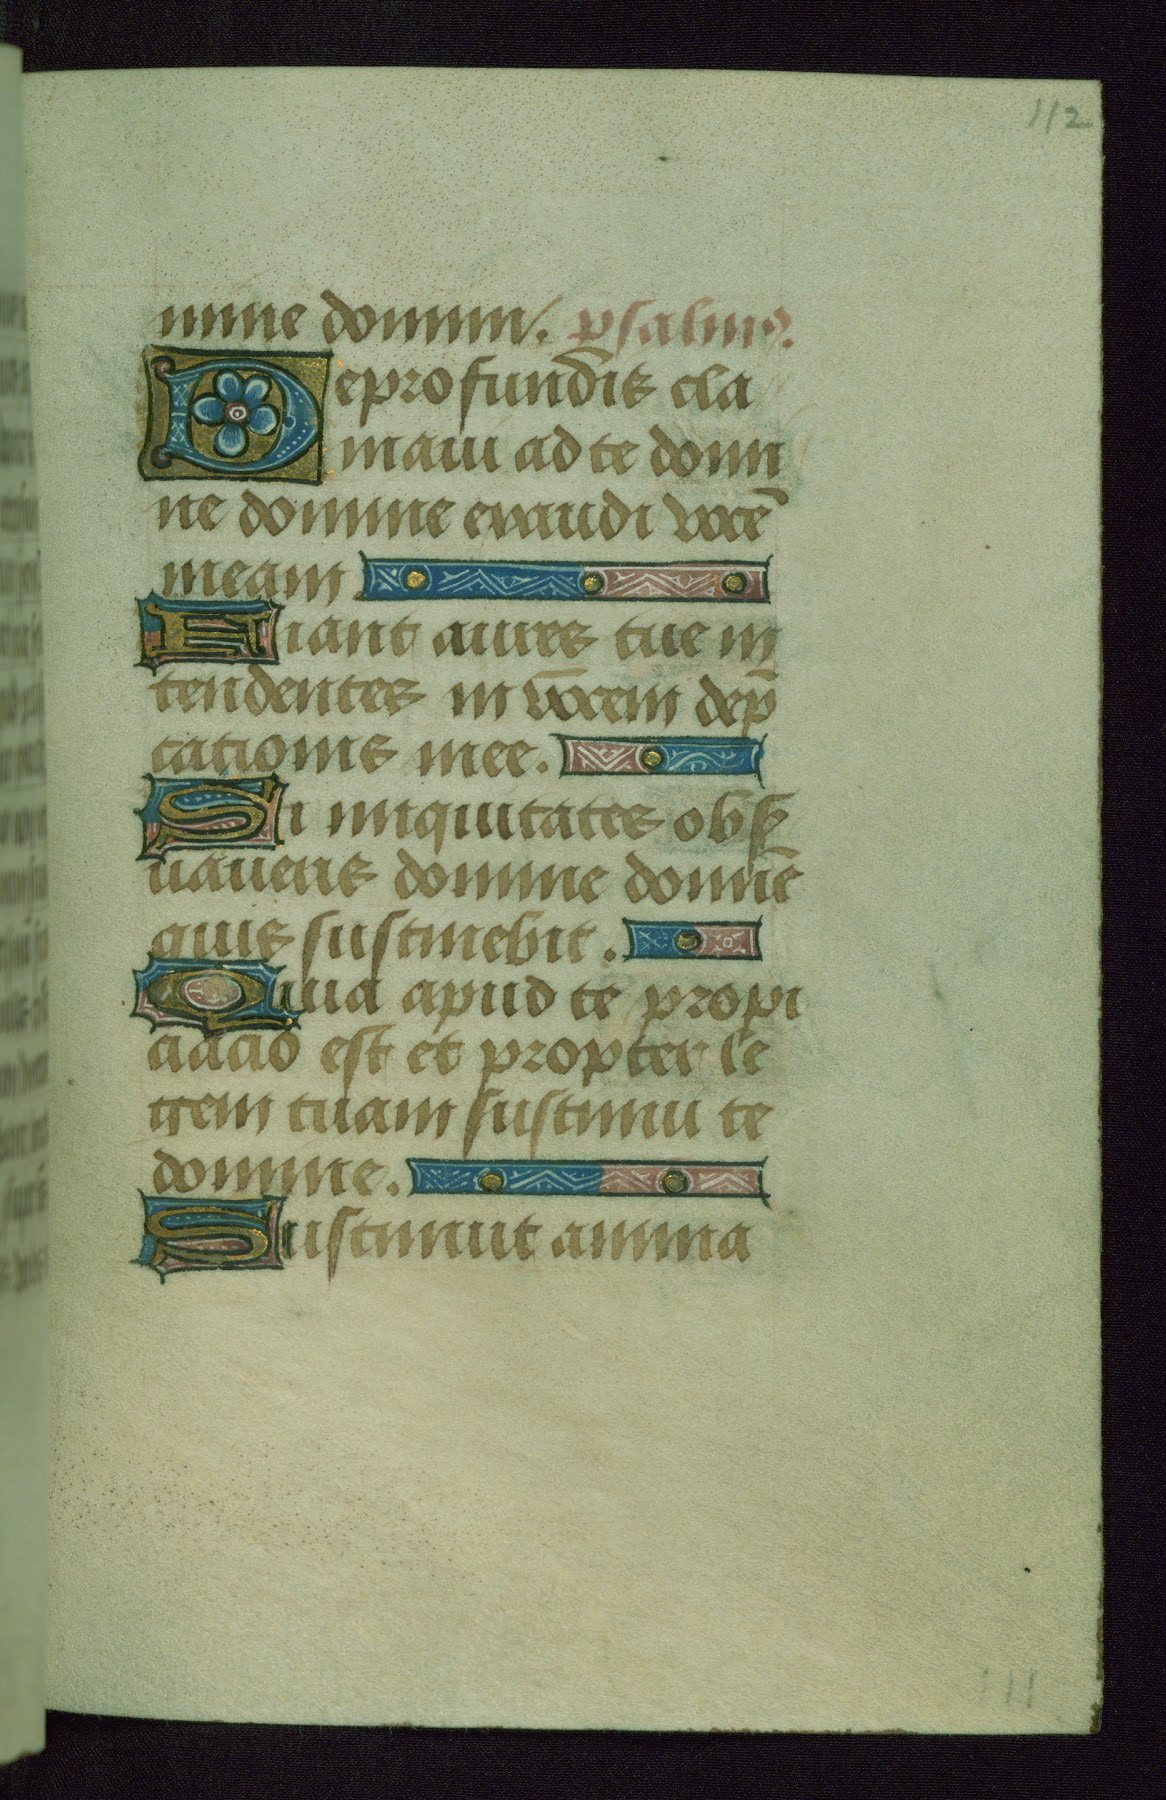 112
mine domini. psalmꝰ.
De profundis cla
maui ad te domi
ne domine exaudi vocē
meam
Fiant aures tue in
tendentes in vocem dep̄
cationis mee.
Si iniquitates obß
uaueris domine domīe
quis sustinebit.
Quia apud te propi
ciacio est et propter le
gem tuam sustinui te
domine.
Sustinuit anima
111